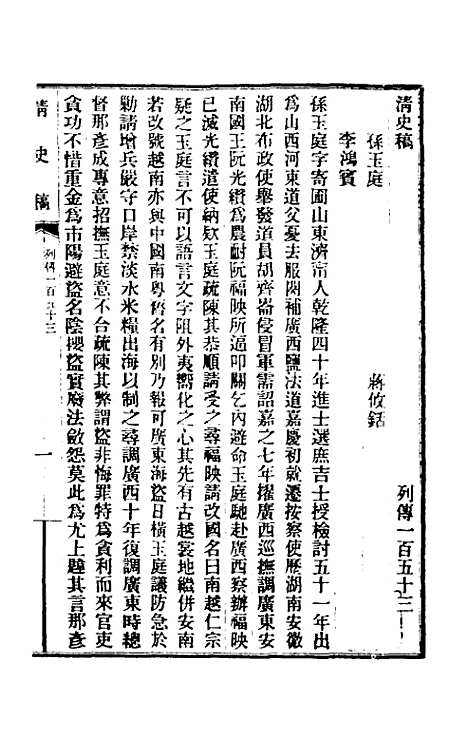 清史稿　列傳一百五十三
孫玉庭　蔣攸銛
李鴻賓
孫玉庭字寄圃山東濟甯人乾隆四十年進士選庶吉士授檢討五十一年出
爲山西河東道父憂去服闋補廣西鹽法道嘉慶初就遷按察使歷湖南安徽
湖北布政使舉發道員胡齊崙侵冒軍需詔嘉之七年擢廣西巡撫調廣東安
南國王阮光纘爲農耐阮福映所逼叩關乞內避命玉庭馳赴廣西察辦福映
已滅光纘遣使納欵玉庭疏陳其恭順請受之尋福映請改國名曰南越仁宗
疑之玉庭言不可以語言文字阻外夷嚮化之心其先有古越裳地繼併安南
若改號越南亦與中國南粵舊名有別乃報可廣東海盜日橫玉庭議防急於
勦請增兵嚴守口岸禁淡水米糧出海以制之尋調廣西十年復調廣東時總
督那彥成專意招撫玉庭意不合疏陳其弊謂盜非悔罪特爲貪利而來官吏
貪功不惜重金爲市陽避盜名陰攖盜實廢法斂怨莫此爲尤上韙其言那彥
清史稿　列傳一百五十三　一